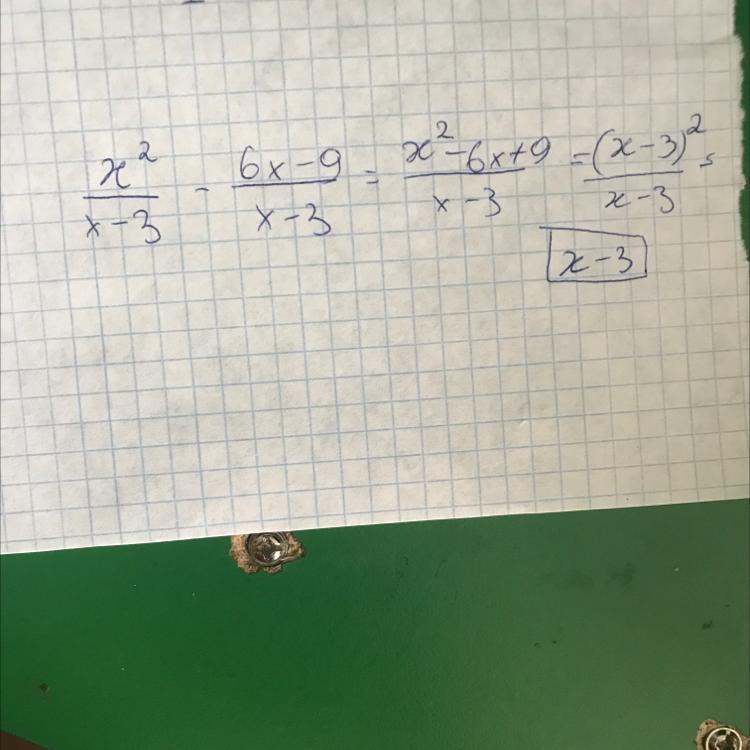 x²/(x-3) - (6x-9)/(x-3) = (x²-6x+9)/(x-3) = (x-3)²/(x-3) =
x-3